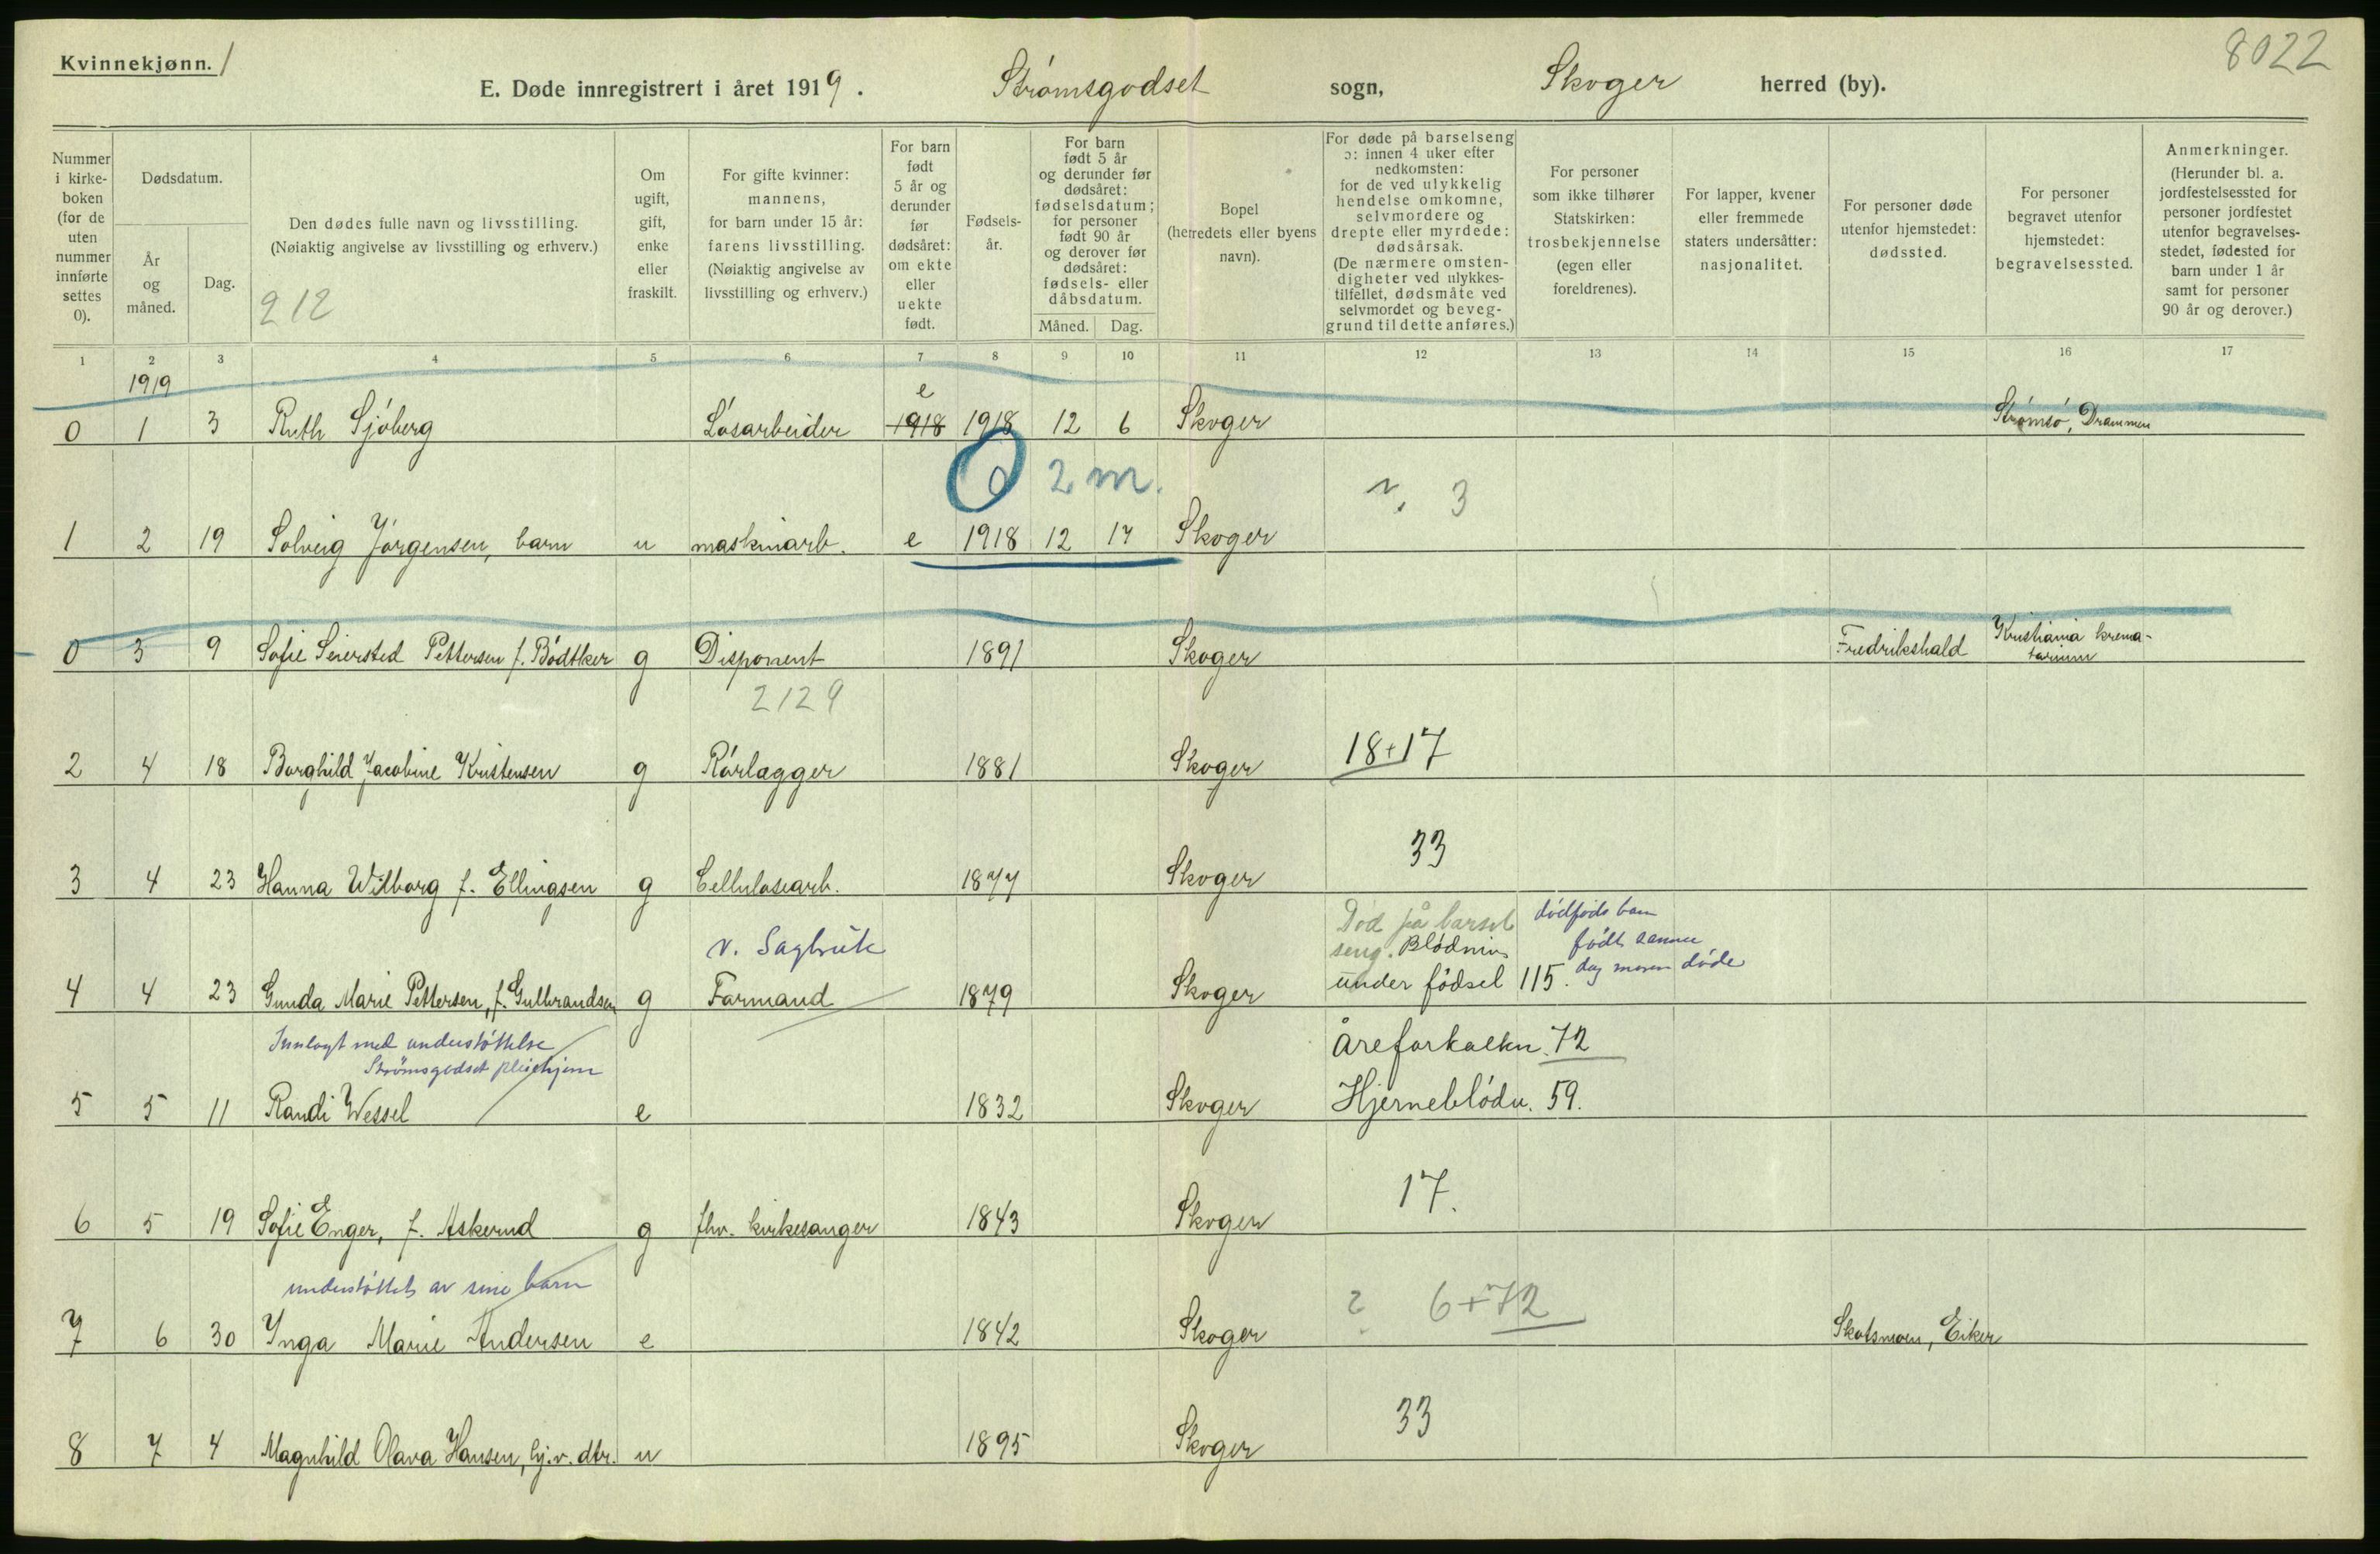 Kvinnekjønn. 1
8022
E. Døde innregistrert i året 1919. Strømsgodset sogn, Skoger herred (by).
Nummer i kirke- boken (for de uten nummer innførte settes 0).
Dødsdatum.
År og måned.
Dag.
Den dødes fulle navn og livsstilling.
(Nøiaktig angivelse av livsstilling og erhverv.)
212
Om ugift, gift, enke eller fraskilt.
For gifte kvinner: mannens, for barn under 15 år: farens livsstilling. (Nøiaktig angivelse av livsstilling og erhverv.)
For barn født 5 år og derunder før dødsåret: om ekte eller uekte født.
Fødsels- år.
For barn født 5 år og derunder før dødsåret: fødselsdatum; for personer født 90 år og derover før dødsåret: fødsels- eller dåbsdatum.
Måned. Dag.
Bopel (herredets eller byens navn).
For døde på barselseng ɔ: innen 4 uker efter nedkomsten: for de ved ulykkelig hendelse omkomne, selvmordere og drepte eller myrdede: dødsårsak. (De nærmere omsten- digheter ved ulykkes- tilfellet, dødsmåte ved selvmordet og beveg- grund til dette anføres.)
For personer som ikke tilhører Statskirken: trosbekjennelse (egen eller foreldrenes).
For lapper, kvener eller fremmede staters undersåtter: nasjonalitet.
For personer døde utenfor hjemstedet: dødssted.
For personer begravet utenfor hjemstedet: begravelsessted.
Anmerkninger. (Herunder bl. a. jordfestelsessted for personer jordfestet utenfor begravelses- stedet, fødested for barn under 1 år samt for personer 90 år og derover.)
1 2 3 4 5 6 7 8 9 10 11 12 13 14 15 16 17
1919
e
0 1 3 Ruth Sjöberg Lösarbeider 1918 1918 12 6 Skoger Strömsö, Drammen
0 2 m. 3
1 2 19 Solveig Jörgensen, barn u maskinarb. e 1918 12 17 Skoger
0 3 9 Sofie Seiersted Pettersen f. Bödtker g Disponent 1891 Skoger Fredrikshald Kristiania krema-
torium
2129
18+17
2 4 18 Borghild Jacobine Kristensen g Rörlægger 1881 Skoger
33
3 4 23 Hanna Wilborg f. Ellingsen g Cellulosearb. 1877 Skoger
Död på barsel dödföds barn
v. Sagbruk seng. Blödning födt samme
4 4 23 Gunda Marie Pettersen, f. Gulbrandsen g Formand 1879 Skoger under födsel 115. dag moren döde
Innlagt med understöttelse Åreforkalkn. 72
Strömsgodset pleiehjem
5 5 11 Randi Wessel e 1832 Skoger Hjerneblödn. 59.
17.
6 5 19 Sofie Enger, f. Askerud g fhv. kirkesanger 1843 Skoger
understöttet av sine barn
? 6+72
7 6 30 Inga Marie Andersen e 1842 Skoger Skotsmoen, Eiker
33
8 7 4 Magnhild Olava Hansen, hj.v. dtr. u 1895 Skoger